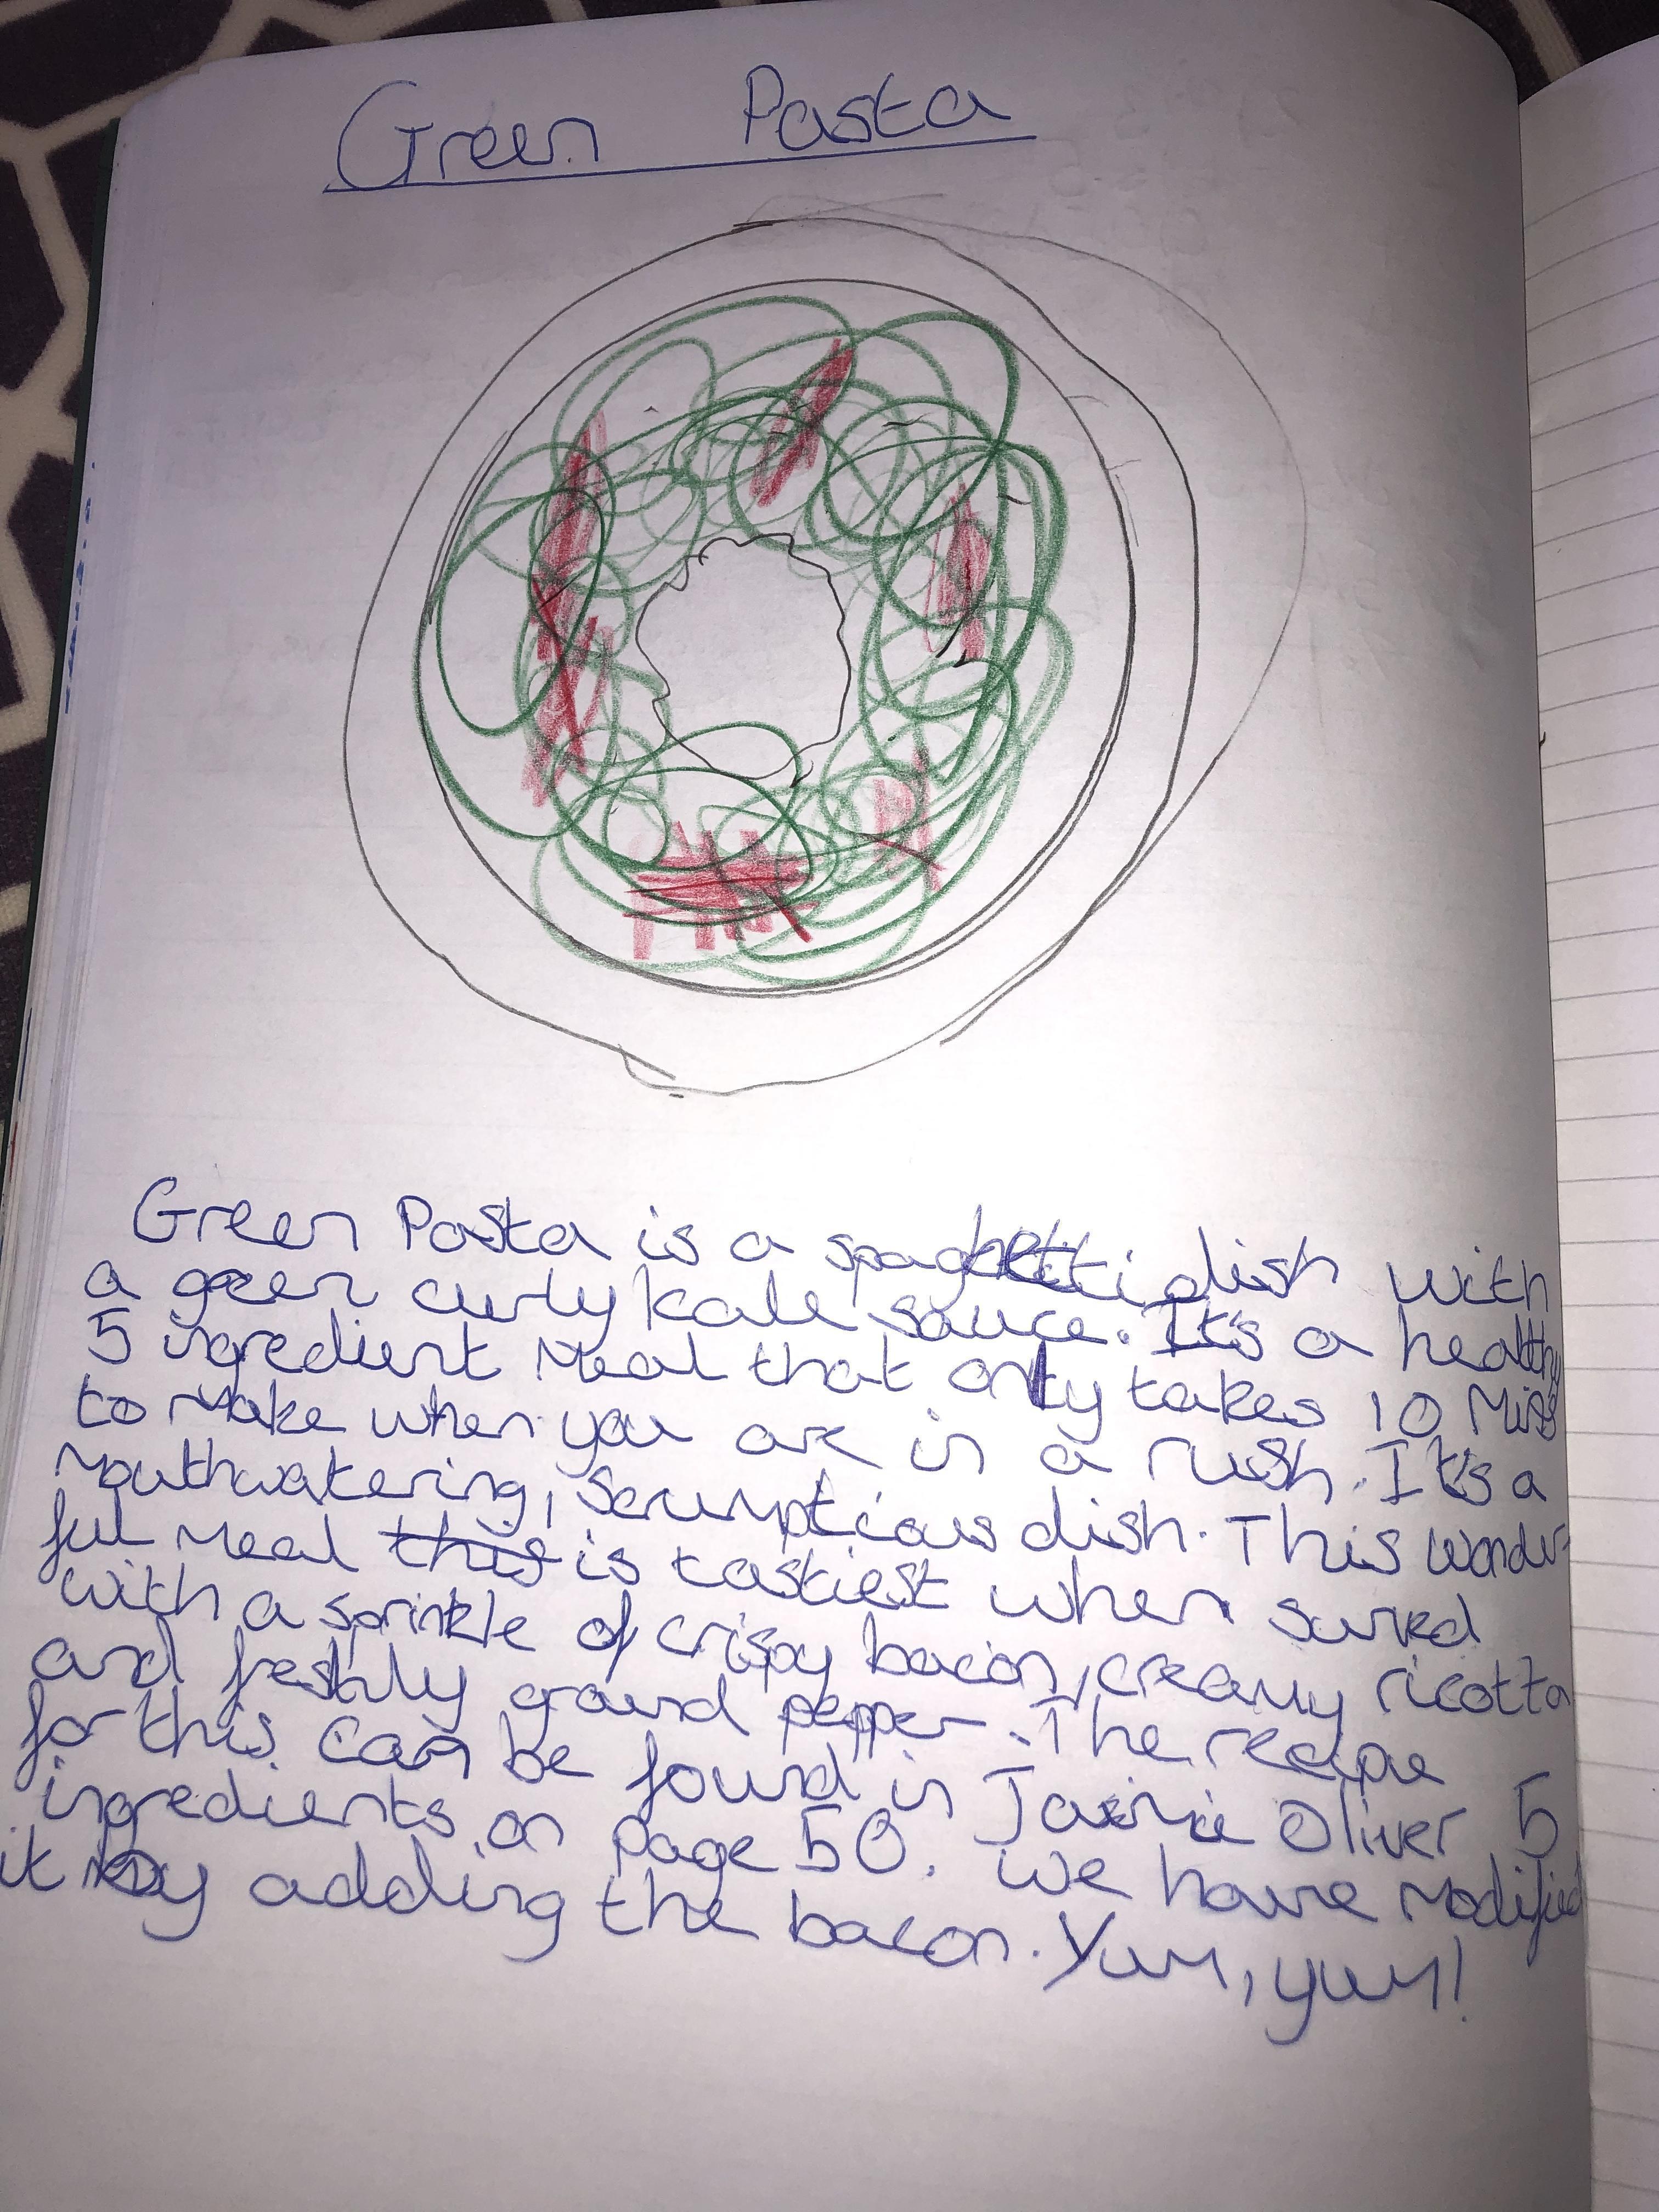 Green Pasta
Green Pasta is a spaghetti dish with
a green curly kale sauce. It's a healthy
5 ingredient meal that only takes 10 mins
to make when you are in a rush. It's a
mouthwatering, scrumptious dish. This wonder-
ful meal this is tastiest when surved
with a sprinkle of crispy bacon, creamy ricotta
and freshly ground pepper. The recipie
for this can be found in Jamie Oliver 5
ingredients on page 50. We have modified
it by adding the bacon. Yum, yum!